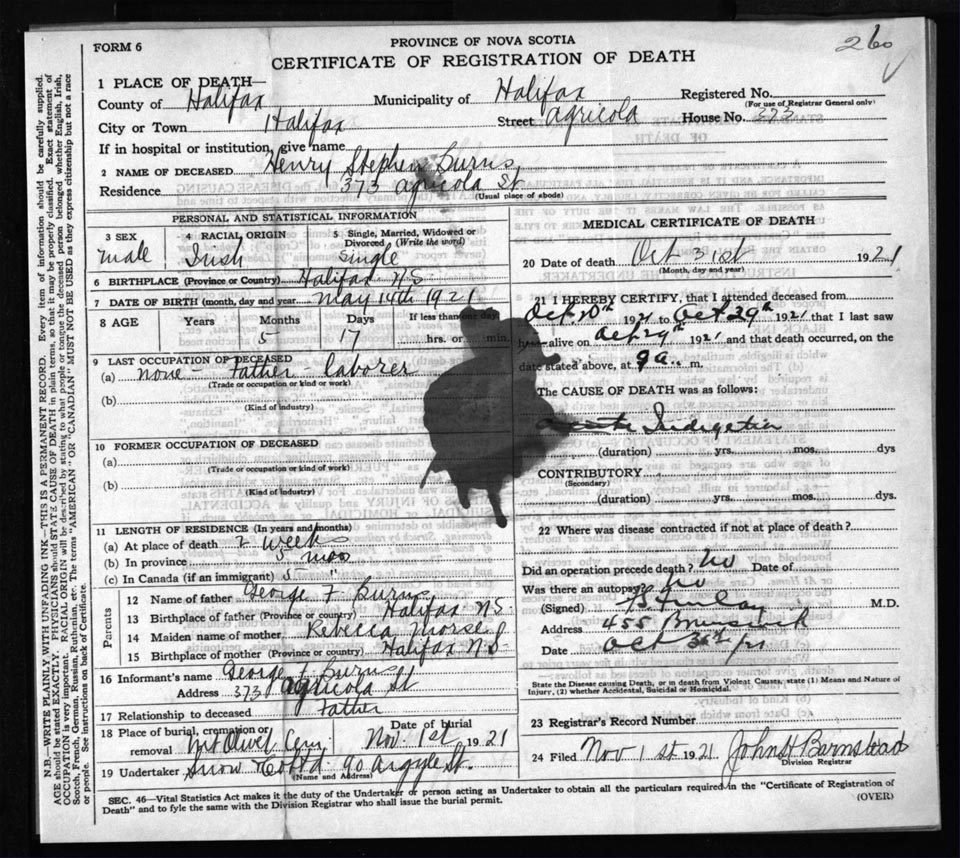 260
FORM 6
PROVINCE OF NOVA SCOTIA
CERTIFICATE OF REGISTRATION OF DEATH
1 PLACE OF DEATH—
County of Halifax Municipality of Halifax Registered No.
(For use of Registrar General only)
City or Town Halifax Street Agricola House No. 373
If in hospital or institution, give name
2 NAME OF DECEASED Henry Stephen Burns
Residence 373 Agricola St
(Usual place of abode)
PERSONAL AND STATISTICAL INFORMATION
3 SEX 4 RACIAL ORIGIN 5 Single, Married, Widowed or Divorced (Write the word)
male Irish Single
6 BIRTHPLACE (Province or Country) Halifax N S
7 DATE OF BIRTH (month, day and year May 14th 1921
8 AGE Years Months Days If less than one day
5 17 hrs. or min.
9 LAST OCCUPATION OF DECEASED
(a) none - Father - laborer
(Trade or occupation or kind or work)
(b)
(Kind of industry)
10 FORMER OCCUPATION OF DECEASED
(a)
(Trade or occupation or kind or work)
(b)
(Kind of industry)
11 LENGTH OF RESIDENCE (In years and months)
(a) At place of death 2 weeks
(b) In province 5 mos
(c) In Canada (if an immigrant) 5 "
Parents
12 Name of father George F Burns
13 Birthplace of father (Province or country) Halifax N S
14 Maiden name of mother Rebecca
15 Birthplace of mother (Province or country) Halifax N S
16 Informant's name George F Burns
Address 373 Agricola St
17 Relationship to deceased Father
18 Place of burial, cremation or removal Mt Olivet Cem Date of burial Nov. 1st 1921
19 Undertaker Snow & Co Ltd 90 Argyle St.
(Name and Address)
MEDICAL CERTIFICATE OF DEATH
20 Date of death Oct 31st 1921
(Month, day and year)
21 I HEREBY CERTIFY, that I attended deceased from
Oct 20th 1921 to Oct 29th 1921 that I last saw
alive on Oct 29th 1921 and that death occurred, on the
date stated above, at 9 a.. m.
The CAUSE OF DEATH was as follows:
Acute Indigestion
(duration) yrs. mos. dys
CONTRIBUTORY
(Secondary)
(duration) yrs. mos. dys.
22 Where was disease contracted if not at place of death?
Did an operation precede death? No Date of
Was there an autopsy? No
(Signed) Finlay M.D.
Address 455 Brunswick
Date Oct 31st/21
State the Disease causing Death, or in death from Violent Causes, state (1) Means and Nature of
Injury, (2) whether Accidental, Suicidal or Homicidal.
23 Registrar's Record Number
24 Filed Nov 1st 1921 John H Barnstead
Division Registrar
SEC. 46—Vital Statistics Act makes it the duty of the Undertaker or person acting as Undertaker to obtain all the particulars required in the "Certificate of Registration of
Death" and to fyle the same with the Division Registrar who shall issue the burial permit.
(OVER)
N.B. WRITE PLAINLY WITH UNFADING INK—THIS IS A PERMANENT RECORD. Every item of information should be carefully supplied.
AGE should be stated EXACTLY. PHYSICIANS should STATE CAUSE OF DEATH in plain terms, so that it may be properly classified. Exact statement of
OCCUPATION is very important. RACIAL ORIGIN will be described by stating to what people or tongue the deceased person belonged, whether English, Irish,
Scotch, French, German, Russian, Ruthenian, etc. The terms "AMERICAN" OR "CANADIAN" MUST NOT BE USED as they express citizenship but not a race
or people. See instructions on back of Certificate.